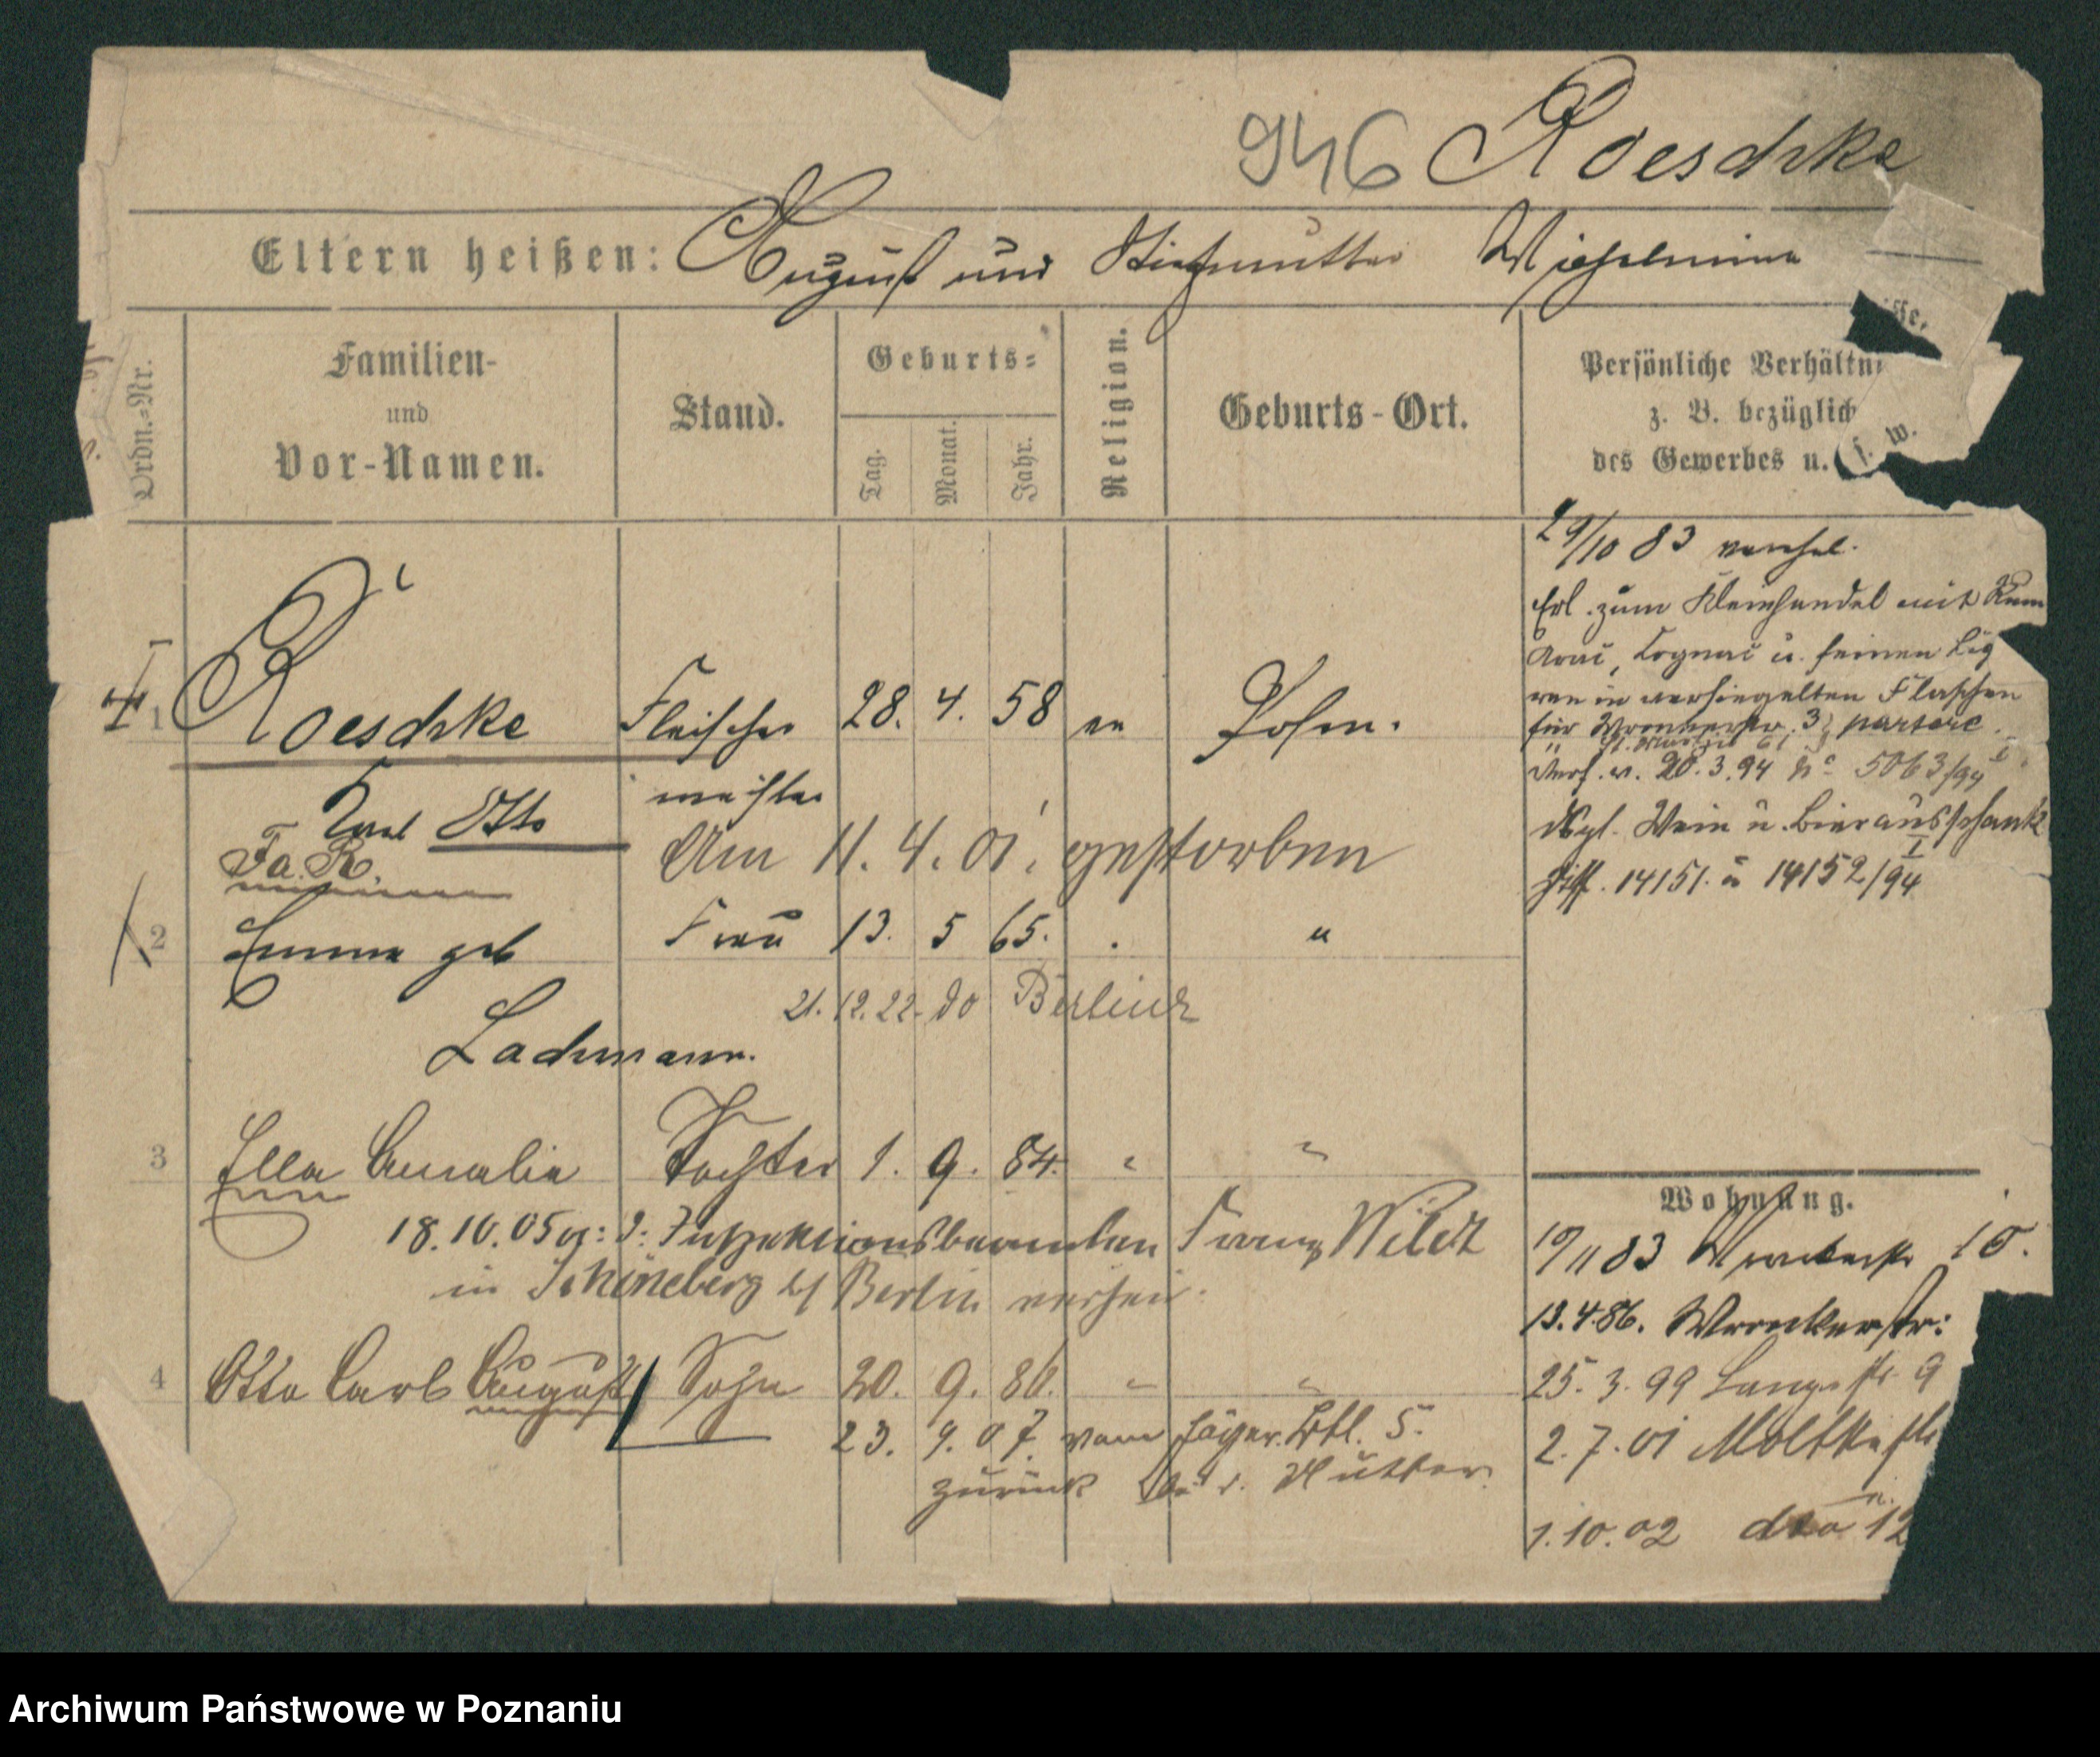 946 Roeschke
Eltern heißen: August und Stiefmutter Wilhelmine
Ordn.-Nr.
Familien-
und
Vor-Namen.
Stand.
Geburts=
Tag.
Monat.
Jahr.
Religion.
Geburts-Ort.
Persönliche Verhältni sse,
z. B. bezüglich
des Gewerbes u. s. w.
29/10 83 verehel.
Erl. zum Kleinhandel mit Rum
Arac, Cognac u. feinen Liq
ren in versiegelten Flaschen
für Wronkerstr. 3, parterre
Verf. v. 20.3.94 No 5063/94
dsgl. Wein u. Bierausschank
14151 u 14152/94 I
1 Roeschke Fleischer 28. 4. 58 ev Posen.
meister
Karl Otto
Fa. R.
Am 11. 4. 01. gestorben
2 Emma geb Frau 13. 5 65. . "
21.12.22.
Lachmann.
3 Ella Amalie Tochter 1. 9. 84. " "
18.10.05 Franz Wildt
in Schöneberg b/ Berlin verheir.
4 Otto Carl August Sohn 20. 9. 86. " "
23. 9. 07. vom Jäger. Btl. 5.
zurück bei d. Mutter.
Wohnung.
10/11 83 Wronkerstr 10.
13.4.86. Wronkerstr:
25. 3. 99 Langestr 9
2. 7. 01 Moltkestr
1. 10. 02 dto 12
Archiwum Państwowe w Poznaniu